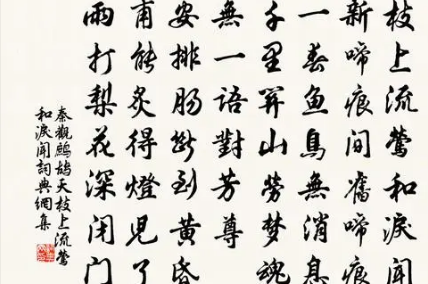 枝上流鶯和淚聞
新啼痕間舊啼痕
一春魚鳥無消息
千里關山勞夢魂
無一語對芳尊
安排腸斷到黃昏
甫能炙得燈兒了
雨打梨花深閉門
秦觀鷓鴣天枝上流鶯
和淚聞詞典網集